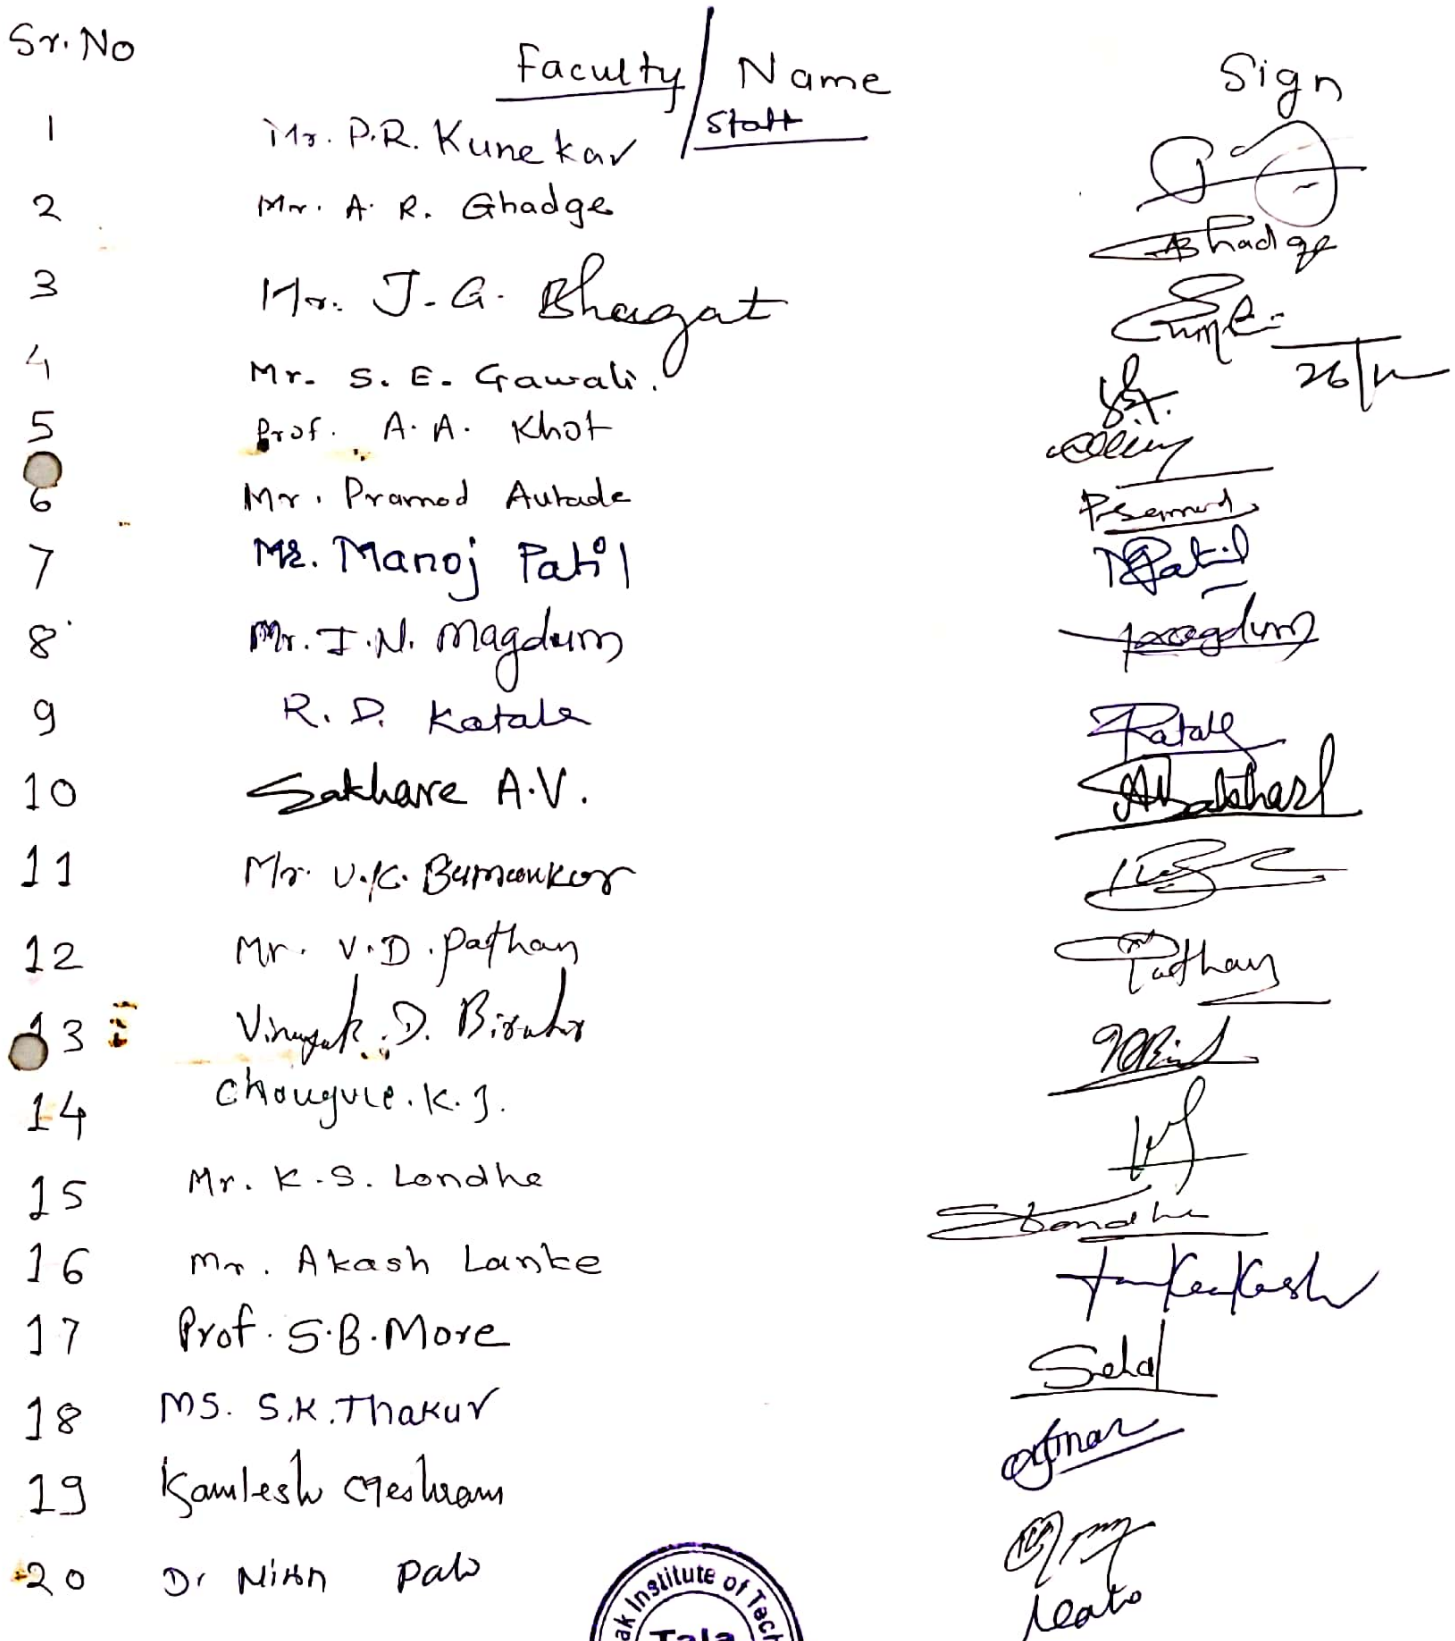 Sr. No Faculty / Staff Name Sign
1 Mr. P.R. Kunekar
2 Mr. A. R. Ghadge Ghadge
3 Mr. J. G. Bhagat
26/12
4 Mr. S. E. Gawali.
5 Prof. A. A. Khot
6 Mr. Pramod Autade Pramod
7 Mr. Manoj Patil MPatil
8 Mr. I. N. Magdum Magdum
9 R. D. Katale RKatale
10 Sakhare A.V. ASakhare
11 Mr. V.K. Bumankar
12 Mr. V.D. Pathan Pathan
13 Vinayak. D. Birader
14 Chougule. K. J.
15 Mr. K. S. Londhe Londhe
16 Mr. Akash Lanke
17 Prof. S.B. More
18 Ms. S.K. Thakur
19 Kamlesh Meshram
20 Dr Nitin
ak Institute of Tech
Tala